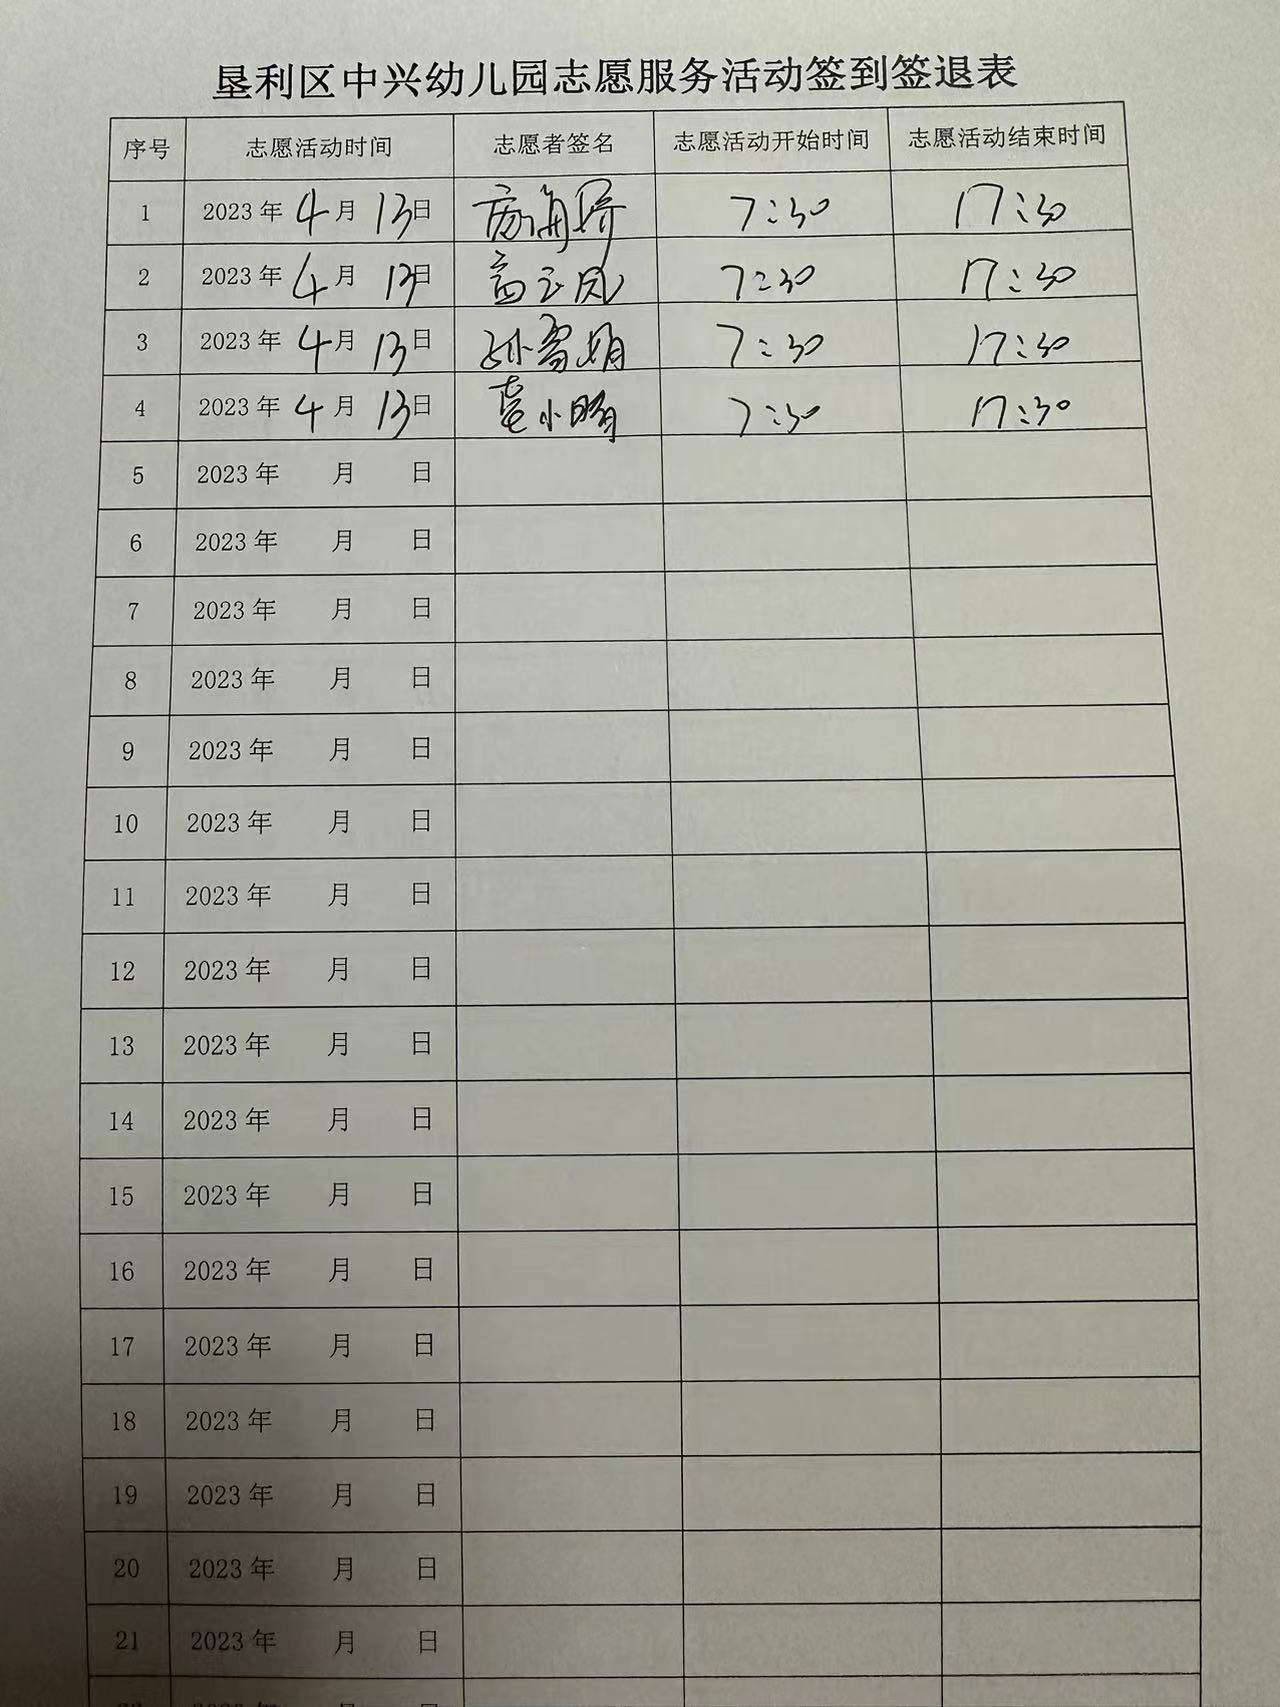 垦利区中兴幼儿园志愿服务活动签到签退表
序号 志愿活动时间 志愿者签名 志愿活动开始时间 志愿活动结束时间
1 2023年 4月 13日 7:30 17:30
2 2023年 4月 13日 高玉凤 7:30 17:30
3 2023年 4月 13日 孙雪娟 7:30 17:30
4 2023年 4月 13日 7:30 17:30
5 2023年 月 日
6 2023年 月 日
7 2023年 月 日
8 2023年 月 日
9 2023年 月 日
10 2023年 月 日
11 2023年 月 日
12 2023年 月 日
13 2023年 月 日
14 2023年 月 日
15 2023年 月 日
16 2023年 月 日
17 2023年 月 日
18 2023年 月 日
19 2023年 月 日
20 2023年 月 日
21 2023年 月 日